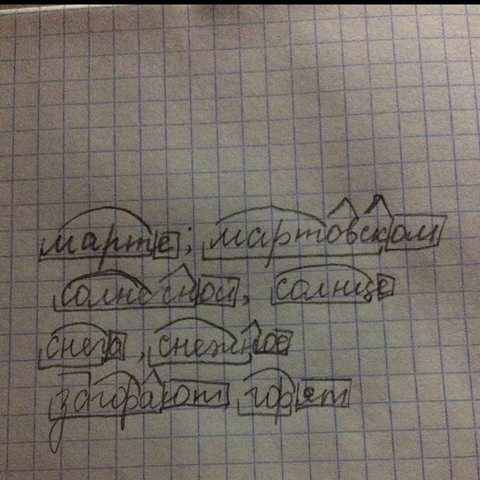 марте; мартовском
солнечной, солнце
снега, снежное
загорают, горит